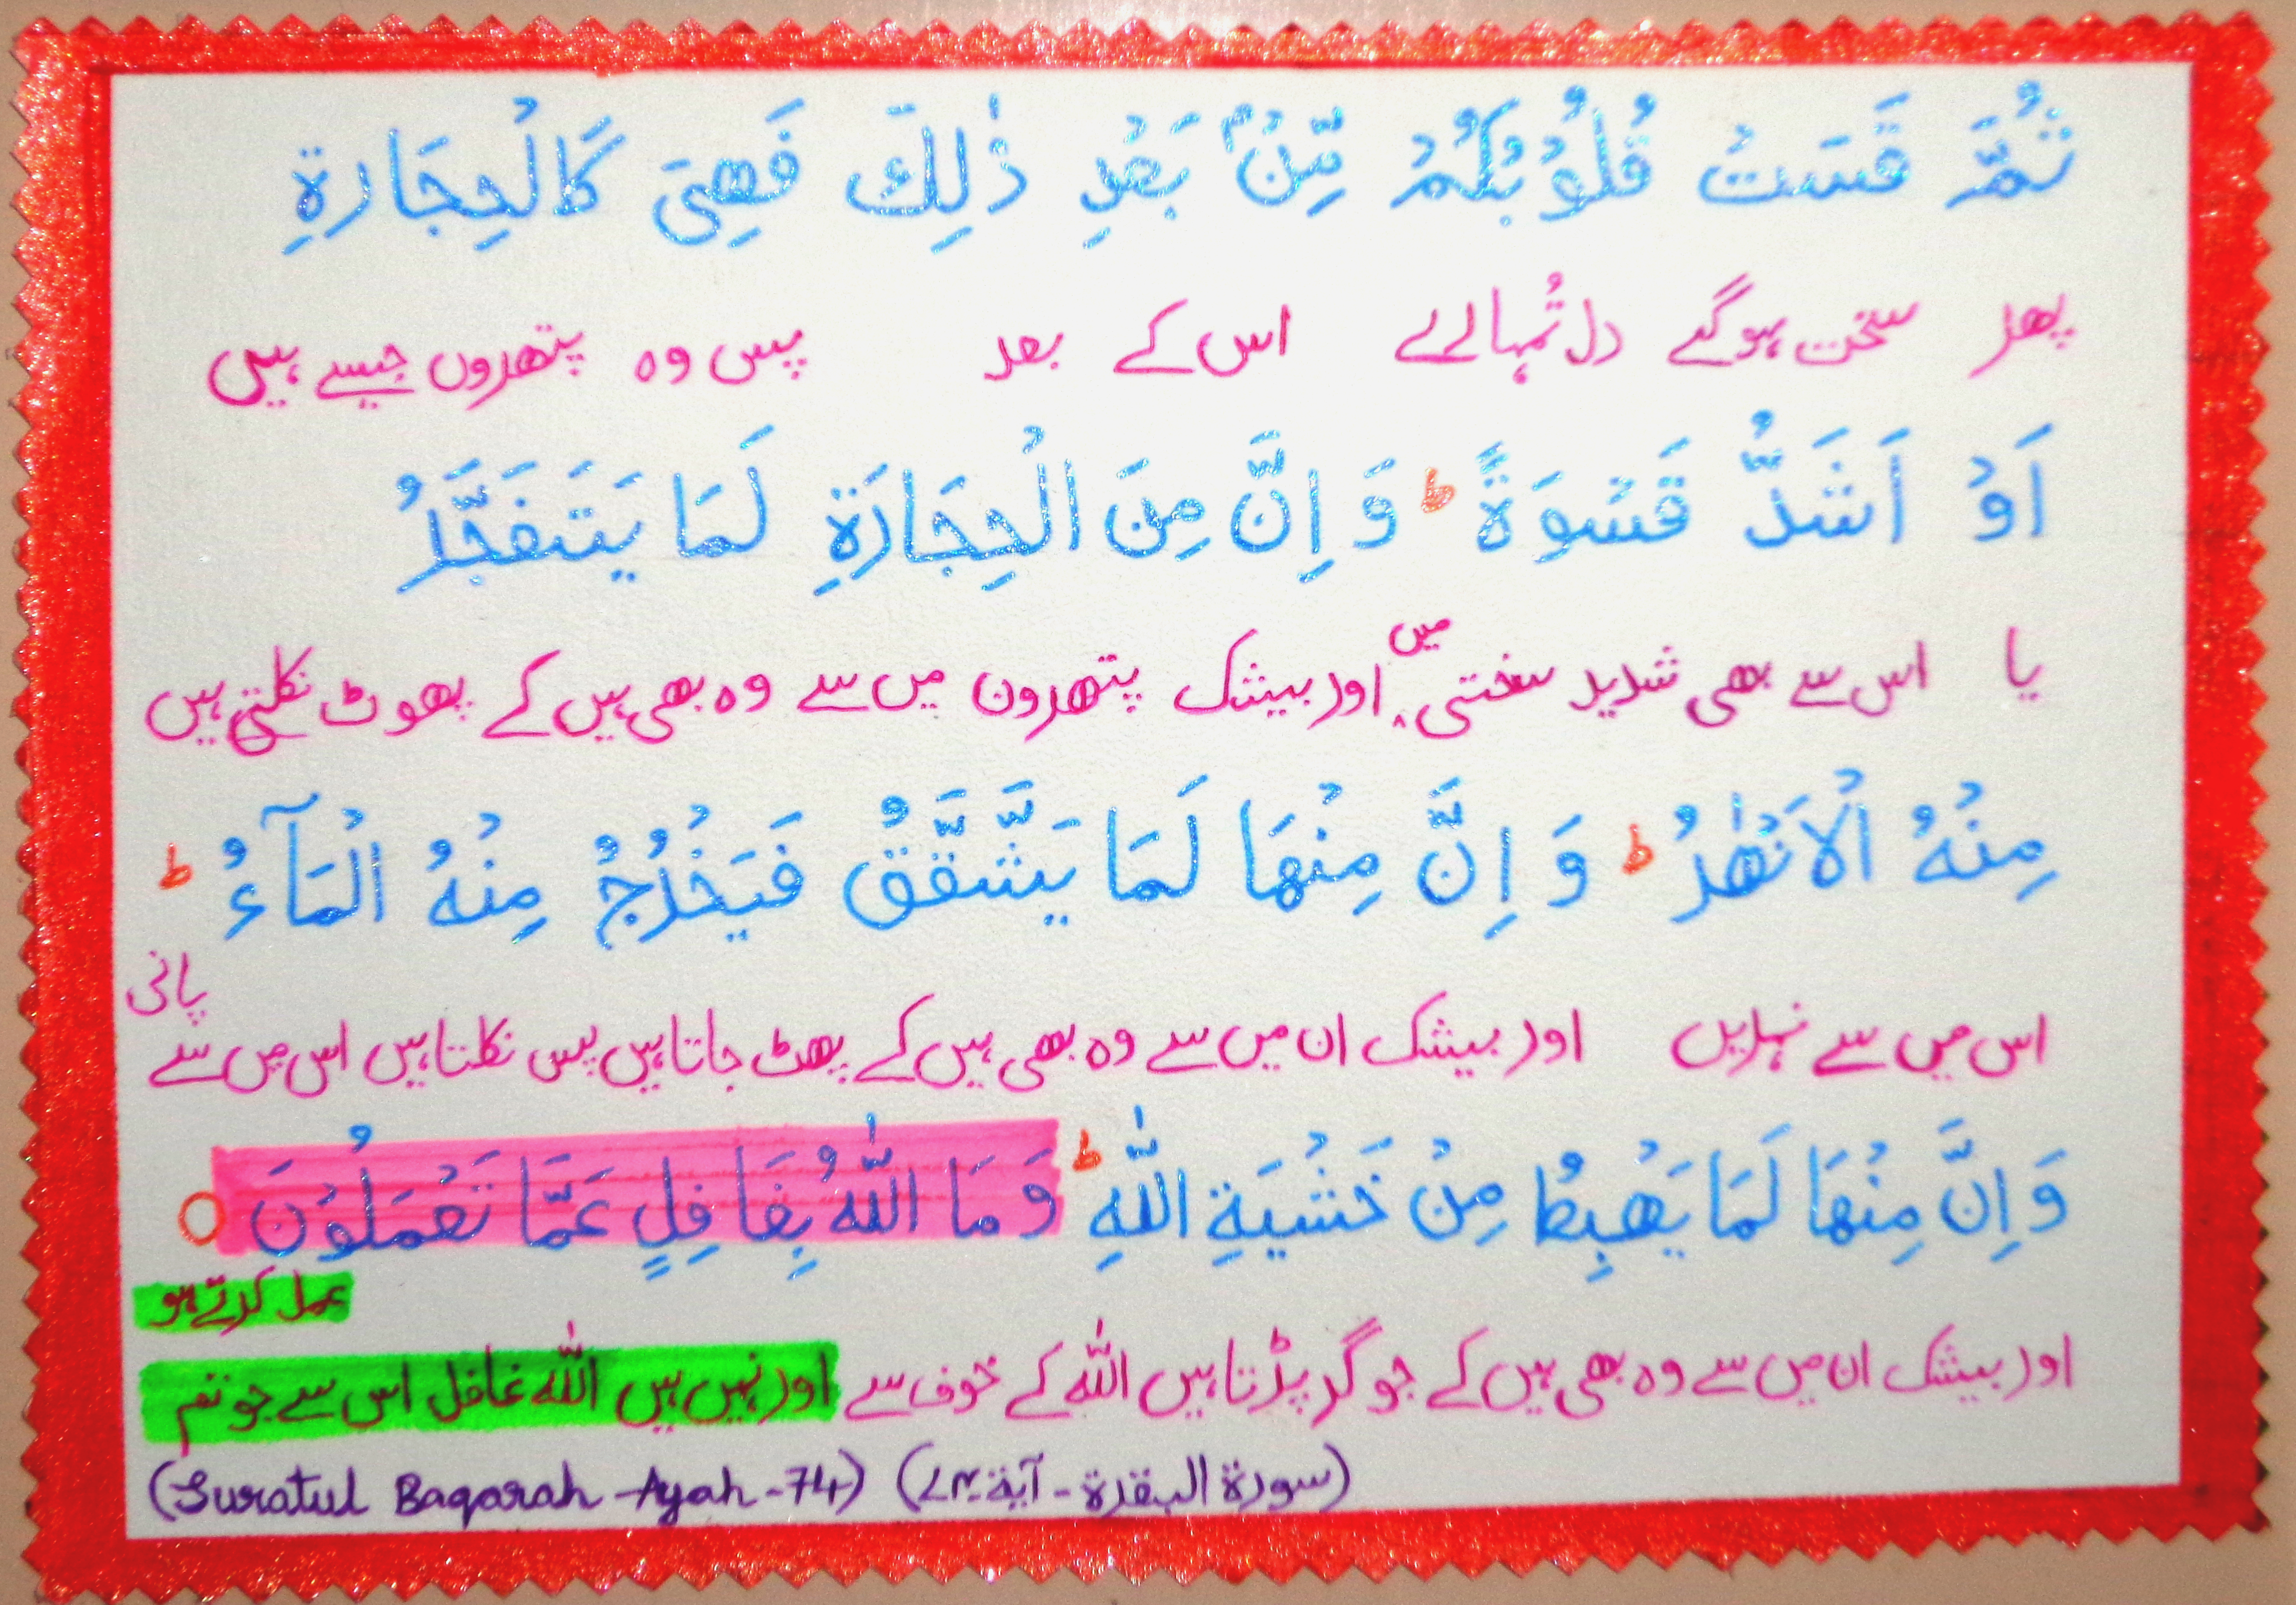 ثُمَّ قَسَتْ قُلُوْبُكُمْ مِّنْۢ بَعْدِ ذٰلِكَ فَهِیَ كَالْحِجَارَةِ
پھر سخت ہوگے دل تُمہالے اس کے بعد پس وہ پتھروں جیسے ہیں
اَوْ اَشَدُّ قَسْوَةً ؕ وَ اِنَّ مِنَ الْحِجَارَةِ لَمَا یَتَفَجَّرُ
یا اس سے بھی شدید سختی میں اور بیشک پتھرون میں سے وہ بھی ہیں کے پھوٹ نکلتی ہیں
مِنْهُ الْاَنْهٰرُ ؕ وَ اِنَّ مِنْهَا لَمَا یَشَّقَّقُ فَیَخْرُجُ مِنْهُ الْمَآءُ ؕ
اس میں سے نہریں اور بیشک ان میں سے وہ بھی ہیں کے پھٹ جاتا ہیں پس نکلتا ہیں اس میں سے پانی
وَ اِنَّ مِنْهَا لَمَا یَهْبِطُ مِنْ خَشْیَةِ اللّٰهِ ؕ وَ مَا اللّٰهُ بِغَافِلٍ عَمَّا تَعْمَلُوْنَ ○
اور بیشک ان میں سے وہ بھی ہیں کے جو گر پڑتا ہیں اللّٰہ کے خوف سے اور نہیں ہیں اللّٰہ غافل اس سے جو تم عمل کرتے ہو
(سورة البقرة - آية ۷۴) (Suratul Baqarah - Ayah - 74)